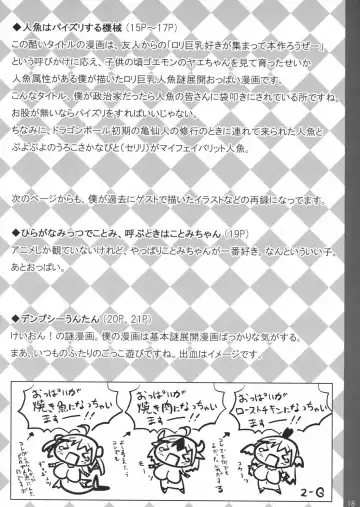 ◆人魚はパイズリする機械（15P～17P）
この酷いタイトルの漫画は、友人からの「ロリ巨乳好きが集まって本作ろうぜー」
という呼びかけに応え、子供の頃ゴエモンのヤエちゃんを見て育ったせいか
人魚属性がある僕が描いたロリ巨乳人魚謎展開おっぱい漫画です。
こんなタイトル、僕が政治家だったら人魚の皆さんに袋叩きにされている所ですね。
お股が無いならパイズリをすればいいじゃない。
ちなみに、ドラゴンボール初期の亀仙人の修行のときに連れて来られた人魚と
ぷよぷよのうろこさかなびと（セリリ）がマイフェイバリット人魚。
次のページからも、僕が過去にゲストで描いたイラストなどの再録になってます。
◆ひらがなみっつでことみ、呼ぶときはことみちゃん（19P）
アニメしか観ていないけれど、やっぱりことみちゃんが一番好き。なんといういい子。
あとおっぱい。
◆デンプシーうんたん（20P、21P）
けいおん！の謎漫画。僕の漫画は基本謎展開漫画ばっかりな気がする。
まあ、いつものふたりのごっこ遊びですね。出血はイメージです。
おっぱいが
焼き魚になっちゃい
ます――!!
おっぱいが
焼き肉になっちゃい
ます――!!
おっぱいが
ローストチキンになっちゃい
ます――!!
18